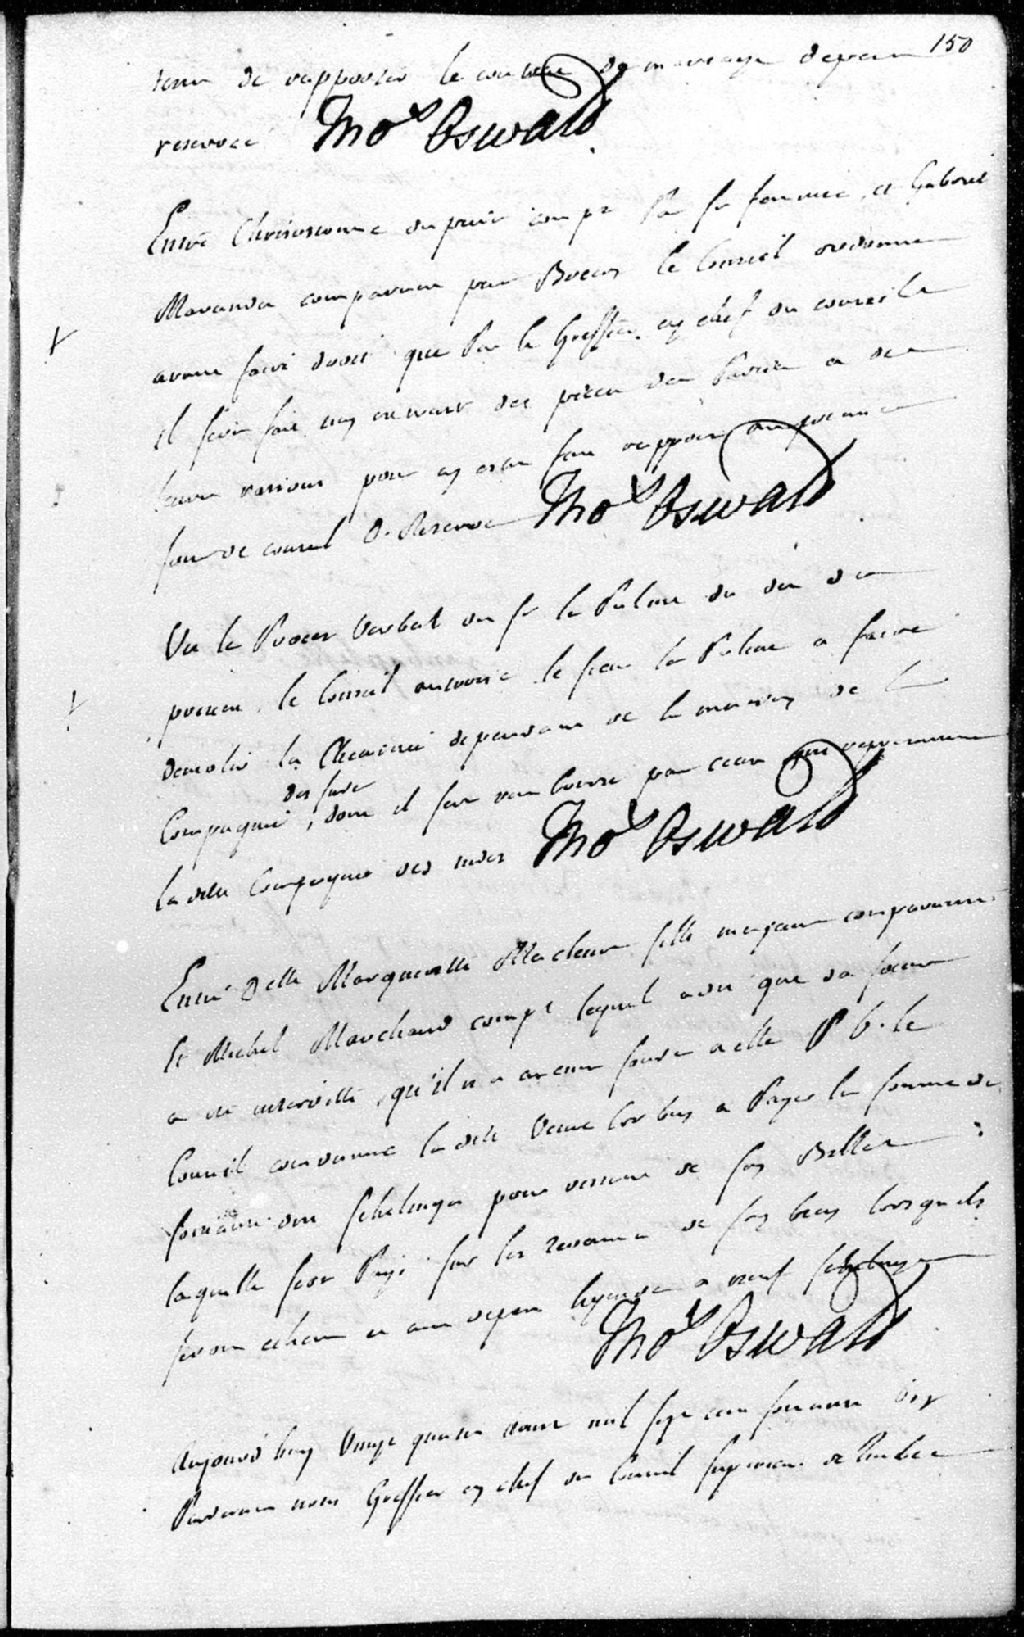 150
tenu de rapporter le contrat de mariage depens
reservés Thos Oswald
Entre Chrisostome dupuis compt Par sa femme, et Gabriel
comparant par le Conseil ordonne
avant faire droit que Par le Greffier en chef du conseil
il sera fait un extrait des pieces des Parties et de
leurs raisons pour en etre fait rapport au premier
jour de conseil D. Reservés Thos Oswald
Vu le Procez Verbal du Sr la Palme du dix du
present, le Conseil autorise le sieur la Palme a faire
demolir la Cheminée dependante de la maison de la
des frais
Compagnie, dont il sera rembourcé par ceux qui representent
la ditte Compagnie des indes Thos Oswald
Entre Delle Margueritte fille majeure comparante
Et Michel Marchand compt lequel a dit que sa soeur
a été interditte, qu'il n'a aucuns fonds a elle P. G. le
Conseil condamne la dite a Payer la somme de
schelings pour restant de son Billet
laquelle sera Payé sur les revenus de son bien lorsquels
seront echus et aux depens liquidés a neuf schelings
Thos Oswald
Aujourd'huy Vingt quatre mil sept cent soixante dix
Pardevant nous Greffier en chef du Conseil superieur de